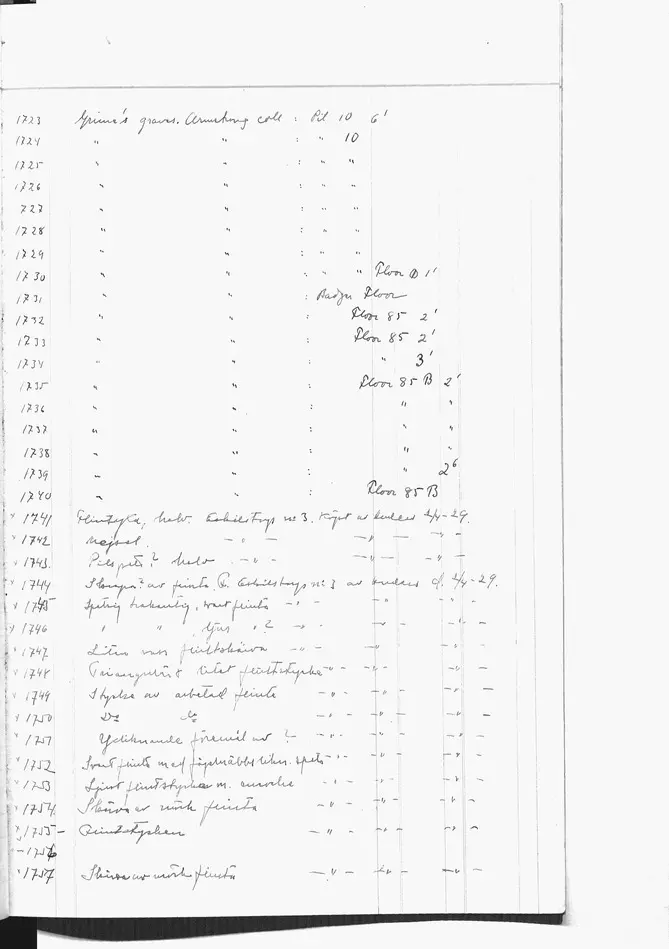 1723 Grime's graves. Armstrong coll : Pit 10 6'
1724 " " : " 10
1725 " " : " "
1726 " " : " "
1727 " " : " "
1728 " " : " "
1729 " " : " "
1730 " " : " " Floor D 1'
1731 " " : Floor
1732 " " : Floor 85 2'
1733 " " : Floor 85 2'
1734 " " : " 3'
1735 " " : Floor 85 B 2'
1736 " " : " "
1737 " " : " "
1738 " " : " "
1739 " " : " 2 6
1740 " " : Floor 85 B
1741 Flintyxa, halv. nr 3. Köpt av 2/4-29.
1742 Mejsel. - " - - " - - " -
1743. Pilspets? halv - " - - " - - " -
1744 av flinta. nr 3 av d. 2/4-29.
1745 Spetsig svart flinta - " - - " - - " -
1746 " " , ljus "? - " - - " - - " -
1747 Liten vass flintskärva - " - - " - - " -
1748 Triangulärt litet flintstycke - " - - " - - " -
1749 Stycke av arbetad flinta - " - - " - - " -
1750 Do do - " - - " - - " -
1751 Ydliknande föremål av ? - " - - " - - " -
1752 Svart flinta med fågelnäbbslikn. spets - " - - " - - " -
1753 Ljust flintstycke m. - " - - " - - " -
1754. Skärva av mörk flinta - " - - " - - " -
1755 - Flintstycken - " - - " - - " -
- 1756
1757 Skärva av mörk flinta - " - - " - - " -